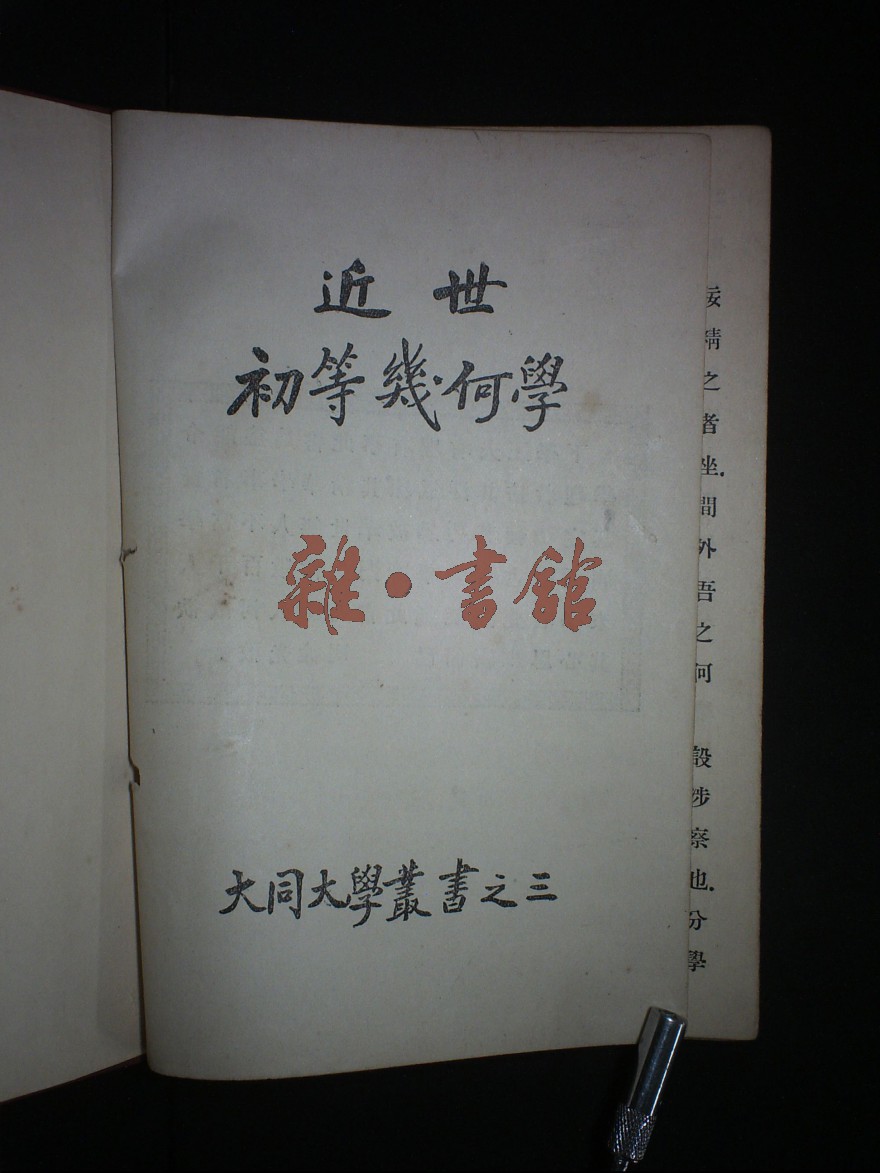 近世
初等幾何學
雜·書館
大同大學叢書之三
精之者坐.間外吾之何
設涉察也.分學